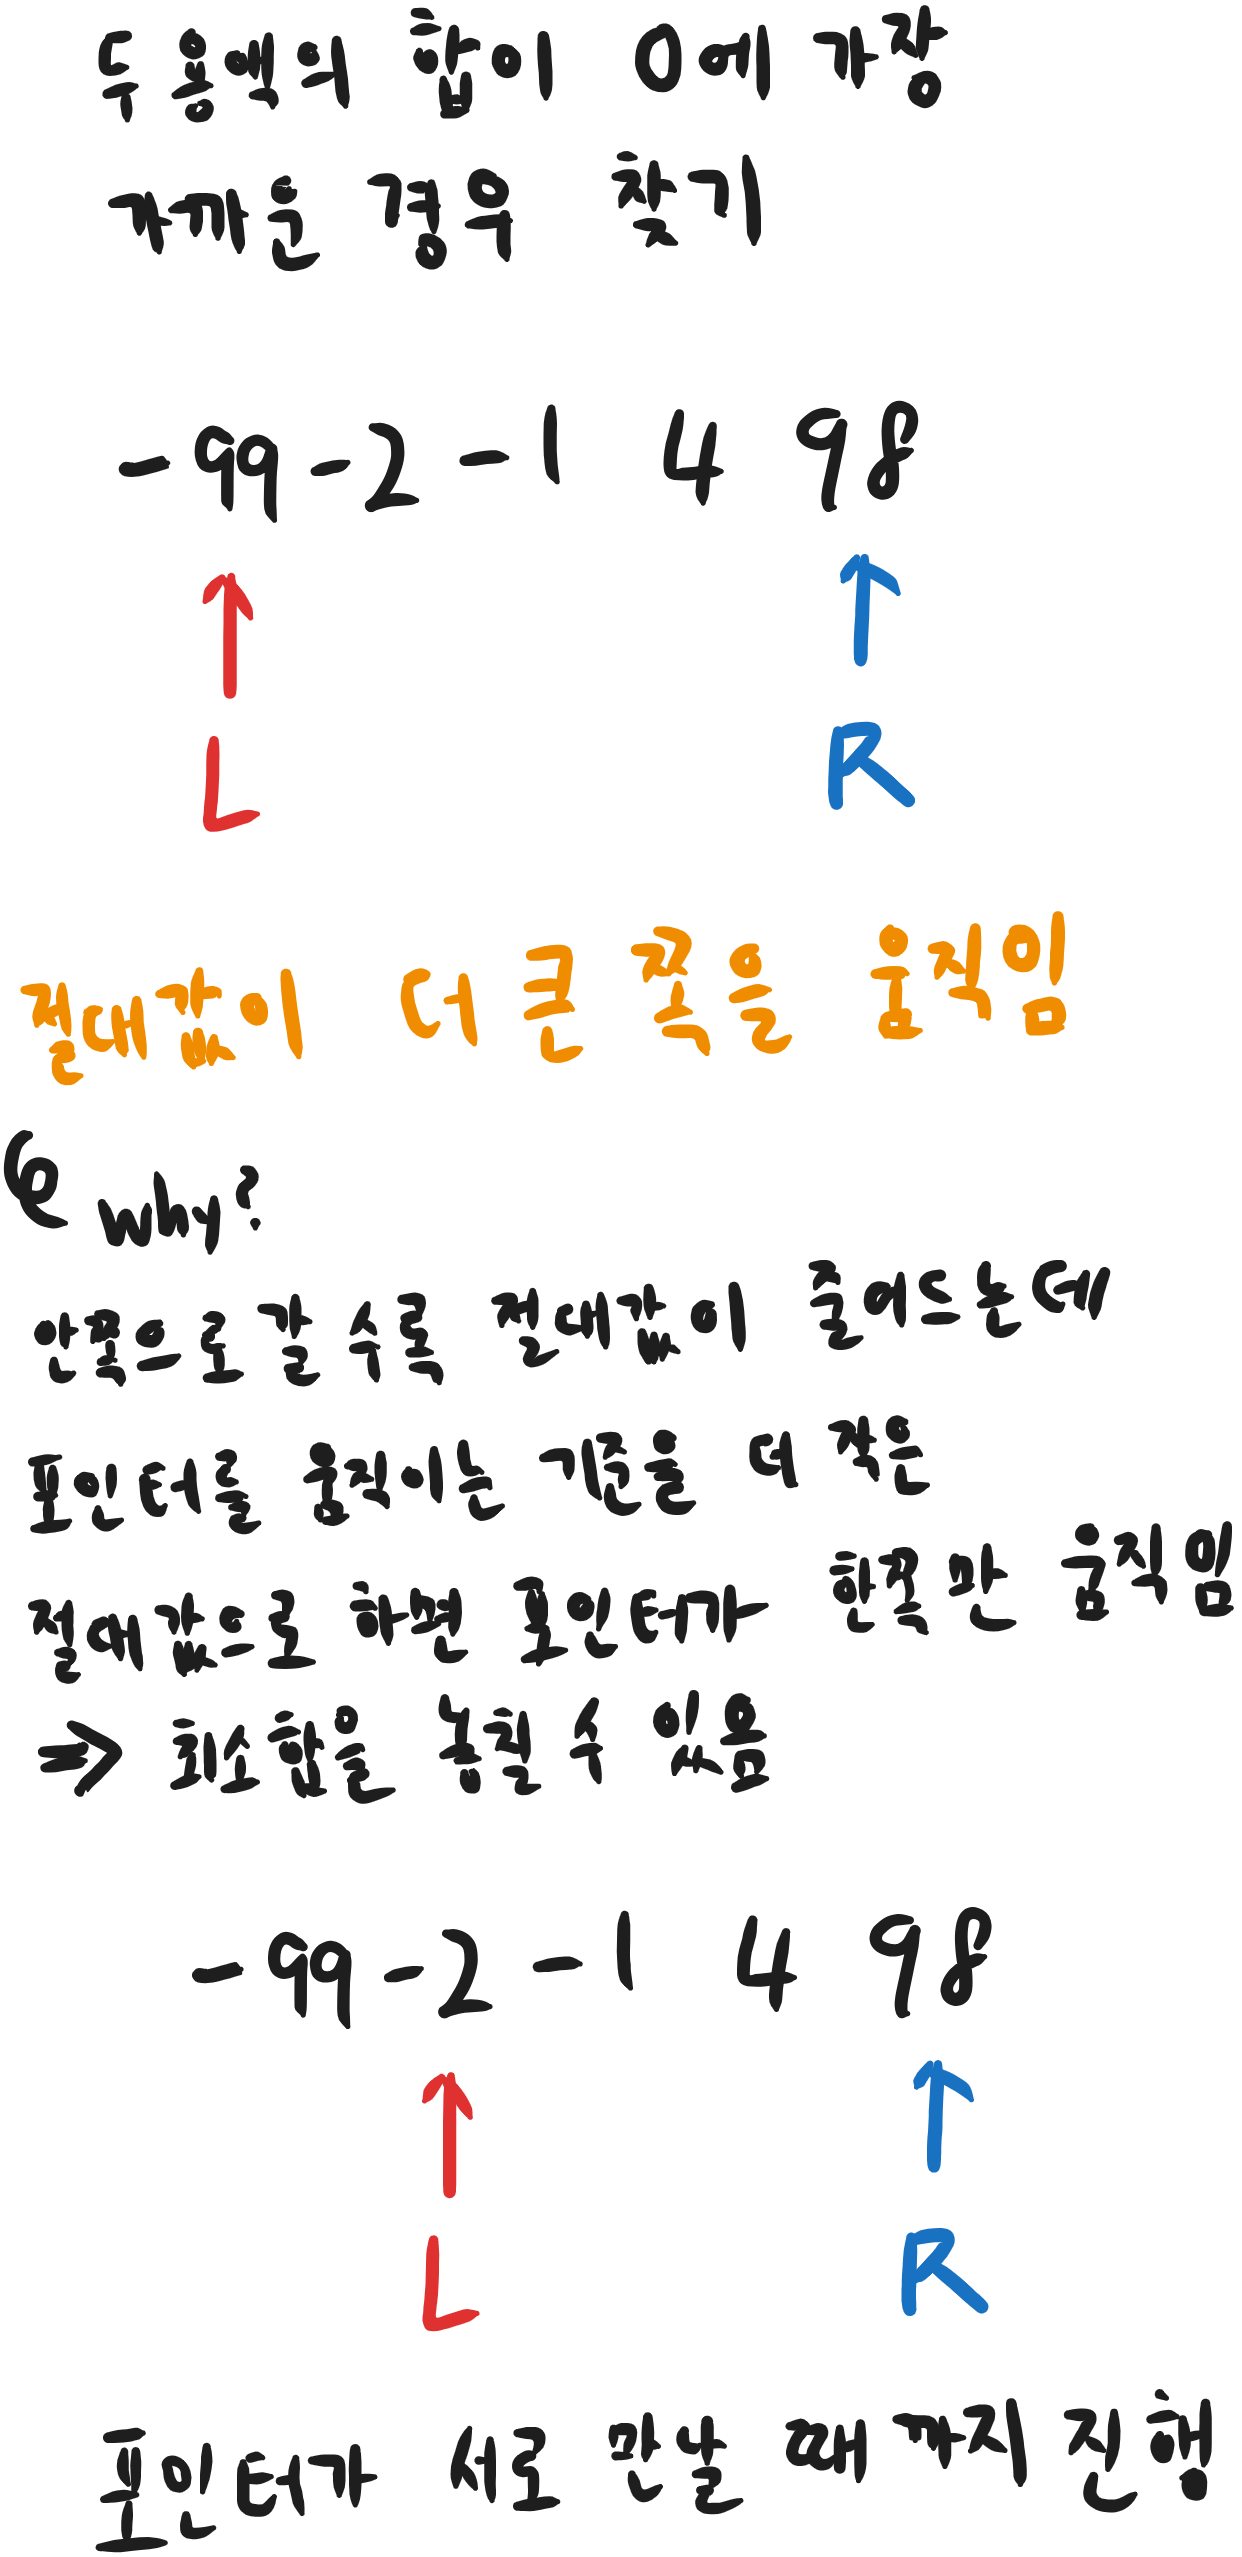 두 용액의 합이 0에 가장
가까운 경우 찾기
-99 -2 -1 4 98
L R
절대값이 더 큰 쪽을 움직임
why?
안쪽으로 갈 수록 절대값이 줄어드는데
포인터를 움직이는 기준을 더 작은
절대값으로 하면 포인터가 한쪽만 움직임
⇒ 최소합을 놓칠 수 있음
-99 -2 -1 4 98
L R
포인터가 서로 만날 때 까지 진행